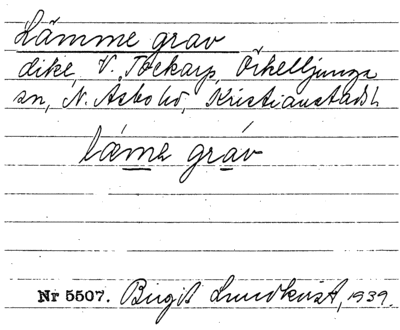 Lämme grav
dike, V. Tockarp, Örkelljunga
sn, N. Åsbo hd, Kristianstads l.
läme gráv
Nr 5507. Birgit Lundkvist, 1939.